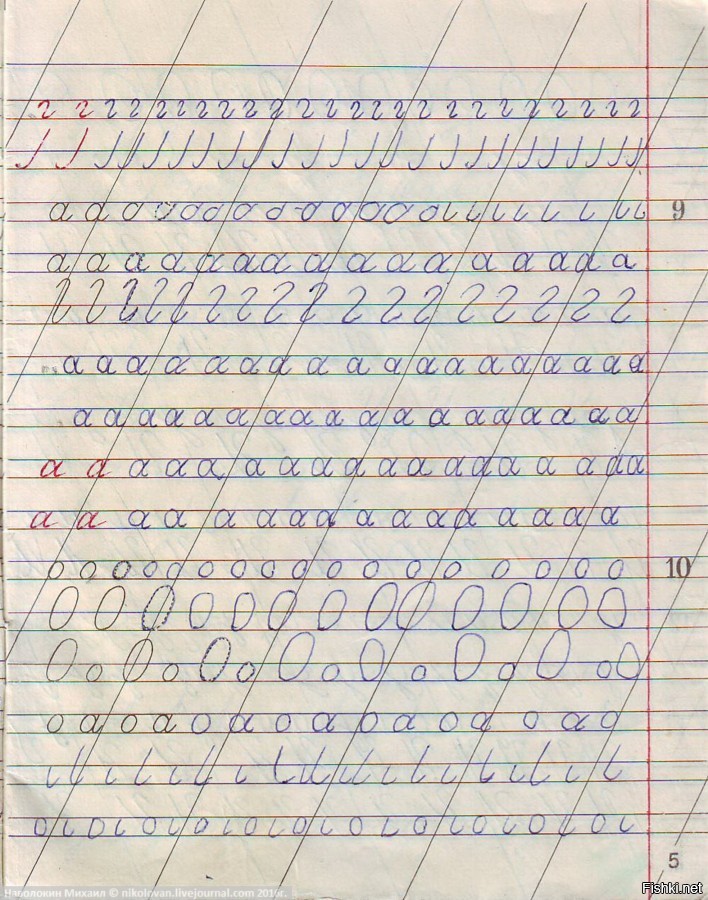 г г г г г г г г г г г г г г г г г г г г г г г г
а а о о о о о о о о о о о
9
а а а а а а а а а а а а а а а а
а а а а а а а а а а а а а а а а а а
а а а а а а а а а а а а а а а а а а
а а а а а а а а а а а а а а а а а а
а а а а а а а а а а а а а а а а
о о о о о о о о о о о о о о о о о
10
О О О О О О О О О О О О О
О о О о О о О о О о О о О о О
о а о а о а о а о а о а о а о
5
Наволокин Михаил © nikolovan.livejournal.com 2016г.
Fishki.net